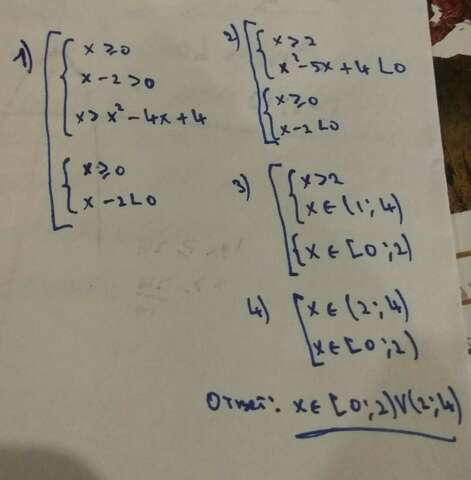 1) x ≥ 0
x - 2 > 0
x > x² - 4x + 4
x ≥ 0
x - 2 < 0
2) x > 2
x² - 5x + 4 < 0
x ≥ 0
x - 2 < 0
3) x > 2
x ∈ (1; 4)
x ∈ [0; 2)
4) x ∈ (2; 4)
x ∈ [0; 2)
Ответ: x ∈ [0; 2) V (2; 4)